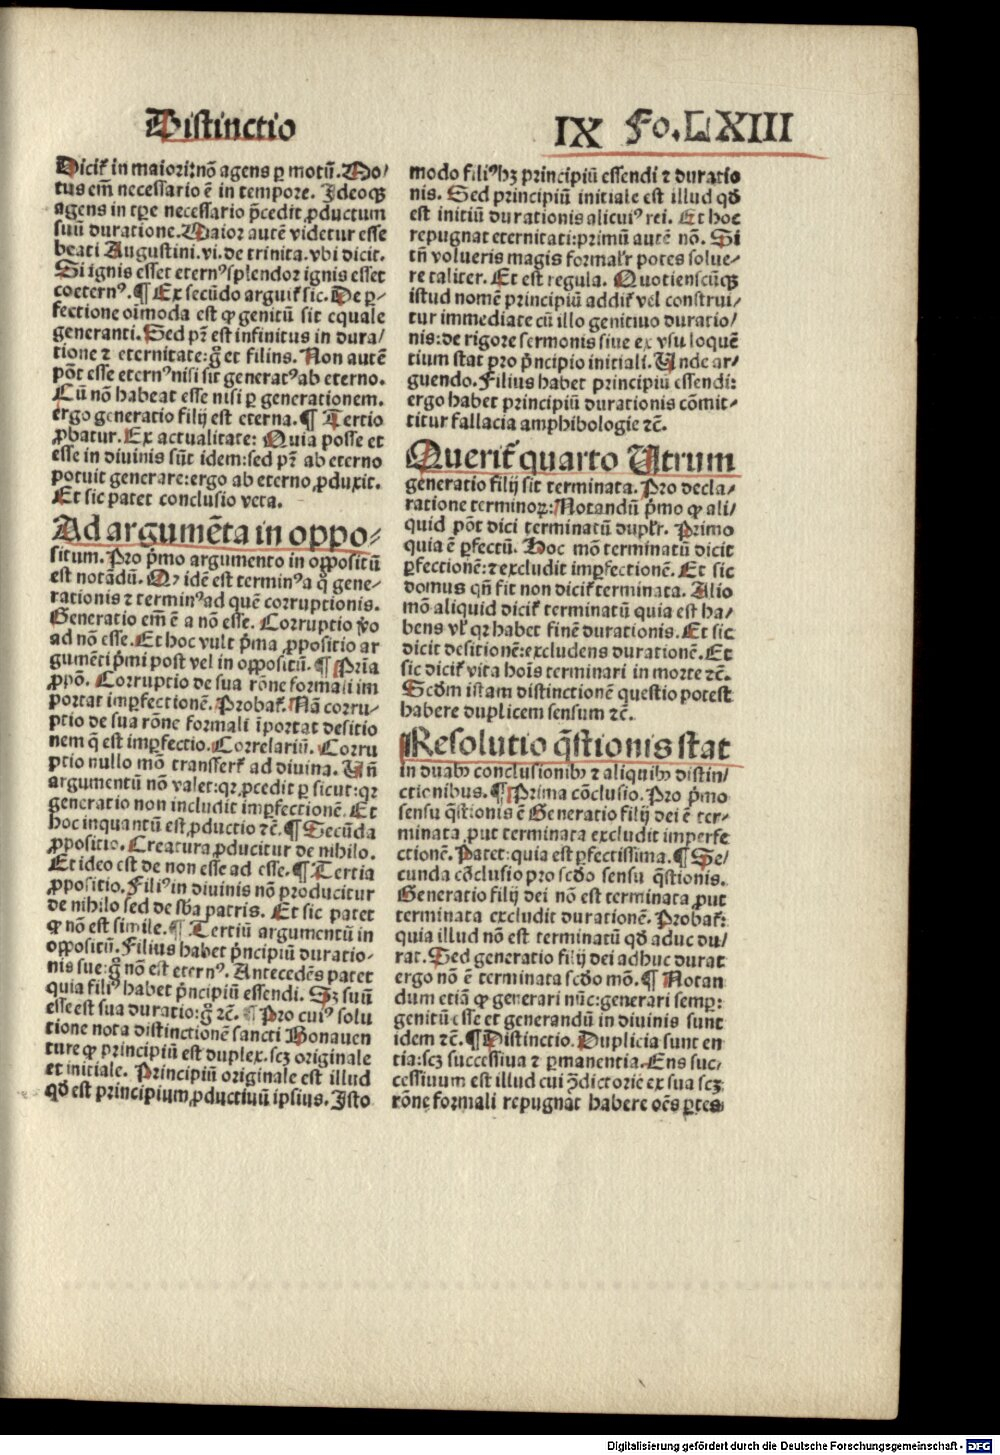 Distinctio
IX Fo.LXIII
Dicit̃ in maiori: nõ agens ꝑ motũ. Mo/
tus em̃ necessario ẽ in tempore. Ideoqꝫ
agens in tp̃e necessario p̃cedit ꝓductum
suũ duratione. Maior autẽ videtur esse
beati Augustini. vi. de trinita. vbi dicit.
Si ignis esset eternꝰ splendor ignis esset
coeternꝰ. ¶ Ex secũdo arguit̃ sic. De ꝑ-
fectione oĩmoda est ꝙ genitũ sit equale
generanti. Sed pr̃ est infinitus in dura/
tione ⁊ eternitate: g̊ et filius. Non autẽ
põt esse eternꝰ nisi sit generatꝰ ab eterno.
Cũ nõ habeat esse nisi ꝑ generationem.
ergo generatio filij est eterna. ¶ Tertio
ꝓbatur. Ex actualitate: Quia posse et
esse in diuinis sũt idem: sed pr̃ ab eterno
potuit generare: ergo ab eterno ꝓduxit.
Et sic patet conclusio vera.
Ad argumẽta in oppo-
situm. Pro p̃mo argumento in oppositũ
est notãdũ. Qꝫ idẽ est terminꝰ a q̊ gene-
rationis ⁊ terminꝰ ad quẽ corruptionis.
Generatio em̃ ẽ a nõ esse. Corruptio ṽo
ad nõ esse. Et hoc vult p̃ma ꝓpositio ar
gumẽti p̃mi post vel in oppositũ. ¶ Prĩa
ꝓpõ. Corruptio de sua rõne formali im
portat imꝑfectionẽ. Probat̃. Nã corru-
ptio de sua rõne formali ĩportat desitio
nem q̃ est imꝑfectio. Correlariũ. Corru
ptio nullo mõ transfert̃ ad diuina. Uñ
argumentũ nõ valet: qꝛ ꝓcedit ꝑ sicut: qꝛ
generatio non includit imꝑfectionẽ. Et
hoc inquantũ est ꝓductio ⁊c̃. ¶ Secũda
ꝓpositio. Creatura ꝓducitur de nihilo.
Et ideo est de non esse ad esse. ¶ Tertia
ꝓpositio. Filiꝰ in diuinis nõ producitur
de nihilo sed de sb̃a patris. Et sic patet
ꝙ nõ est simile. ¶ Tertiũ argumentũ in
oppositũ. Filius habet p̃ncipiũ duratio-
nis sue: g̊ nõ est eternꝰ. Antecedẽs patet
quia filiꝰ habet p̃ncipiũ essendi. Sꝫ suũ
esse est sua duratio: g̊ ⁊c̃. ¶ Pro cuiꝰ solu
tione nota distinctionẽ sancti Bonauen
ture ꝙ principiũ est duplex. scꝫ originale
et initiale. Principiũ originale est illud
qđ est principium ꝓductiuũ ipsius. Isto
modo filiꝰ hꝫ principiũ essendi ⁊ duratio
nis. Sed principiũ initiale est illud qđ
est initiũ durationis alicuiꝰ rei. Et hoc
repugnat eternitati: primũ autẽ nõ. Si
tñ volueris magis formalr̃ potes solue-
re taliter. Et est regula. Quotienscũqꝫ
istud nomẽ principiũ addit̃ vel construi/
tur immediate cũ illo genitiuo duratio/
nis: de rigore sermonis siue ex vsu loquẽ
tium stat pro p̃ncipio initiali. Unde ar-
guendo. Filius habet principiũ essendi:
ergo habet principiũ durationis cõmit-
titur fallacia amphibologie ⁊c̃.
Querit̃ quarto Utrum
generatio filij sit terminata. Pro decla/
ratione terminoꝝ: Notandũ p̃mo ꝙ ali/
quid põt dici terminatũ duplr̃. Primo
quia ẽ ꝑfectũ. Hoc mõ terminatũ dicit
ꝑfectionẽ: ⁊ excludit imꝑfectionẽ. Et sic
domus qñ fit non dicit̃ terminata. Alio
mõ aliquid dicit̃ terminatũ quia est ha/
bens vl̃ qꝛ habet finẽ durationis. Et sic
dicit desitionẽ: excludens durationẽ. Et
sic dicit̃ vita hoĩs terminari in morte ⁊c̃.
Scđm istam distinctionẽ questio potest
habere duplicem sensum ⁊c̃.
¶ Resolutio q̃stionis stat
in duabꝫ conclusionibꝫ ⁊ aliquibꝫ distin/
ctionibus. ¶ Prima cõclusio. Pro p̃mo
sensu q̃stionis ẽ Generatio filij dei ẽ ter-
minata ꝓut terminata excludit imperfe
ctionẽ. Patet: quia est ꝑfectissima. ¶ Se/
cunda cõclusio pro scđo sensu q̃stionis.
Generatio filij dei nõ est terminata ꝓut
terminata excludit durationẽ. Probat̃:
quia illud nõ est terminatũ qđ aduc du/
rat. Sed generatio filij dei adhuc durat
ergo nõ ẽ terminata scđo mõ. ¶ Notan
dum etiã ꝙ generari nũc: generari semper:
genitũ esse et generandũ in diuinis sunt
idem ⁊c̃. ¶ Distinctio. Duplicia sunt en
tia: scꝫ successiua ⁊ ꝑmanentia. Ens suc/
cessiuum est illud cui ꝯ̃dictorie ex sua scꝫ
rõne formali repugnat habere oẽs ꝑtes
Digitalisierung gefördert durch die Deutsche Forschungsgemeinschaft - DFG